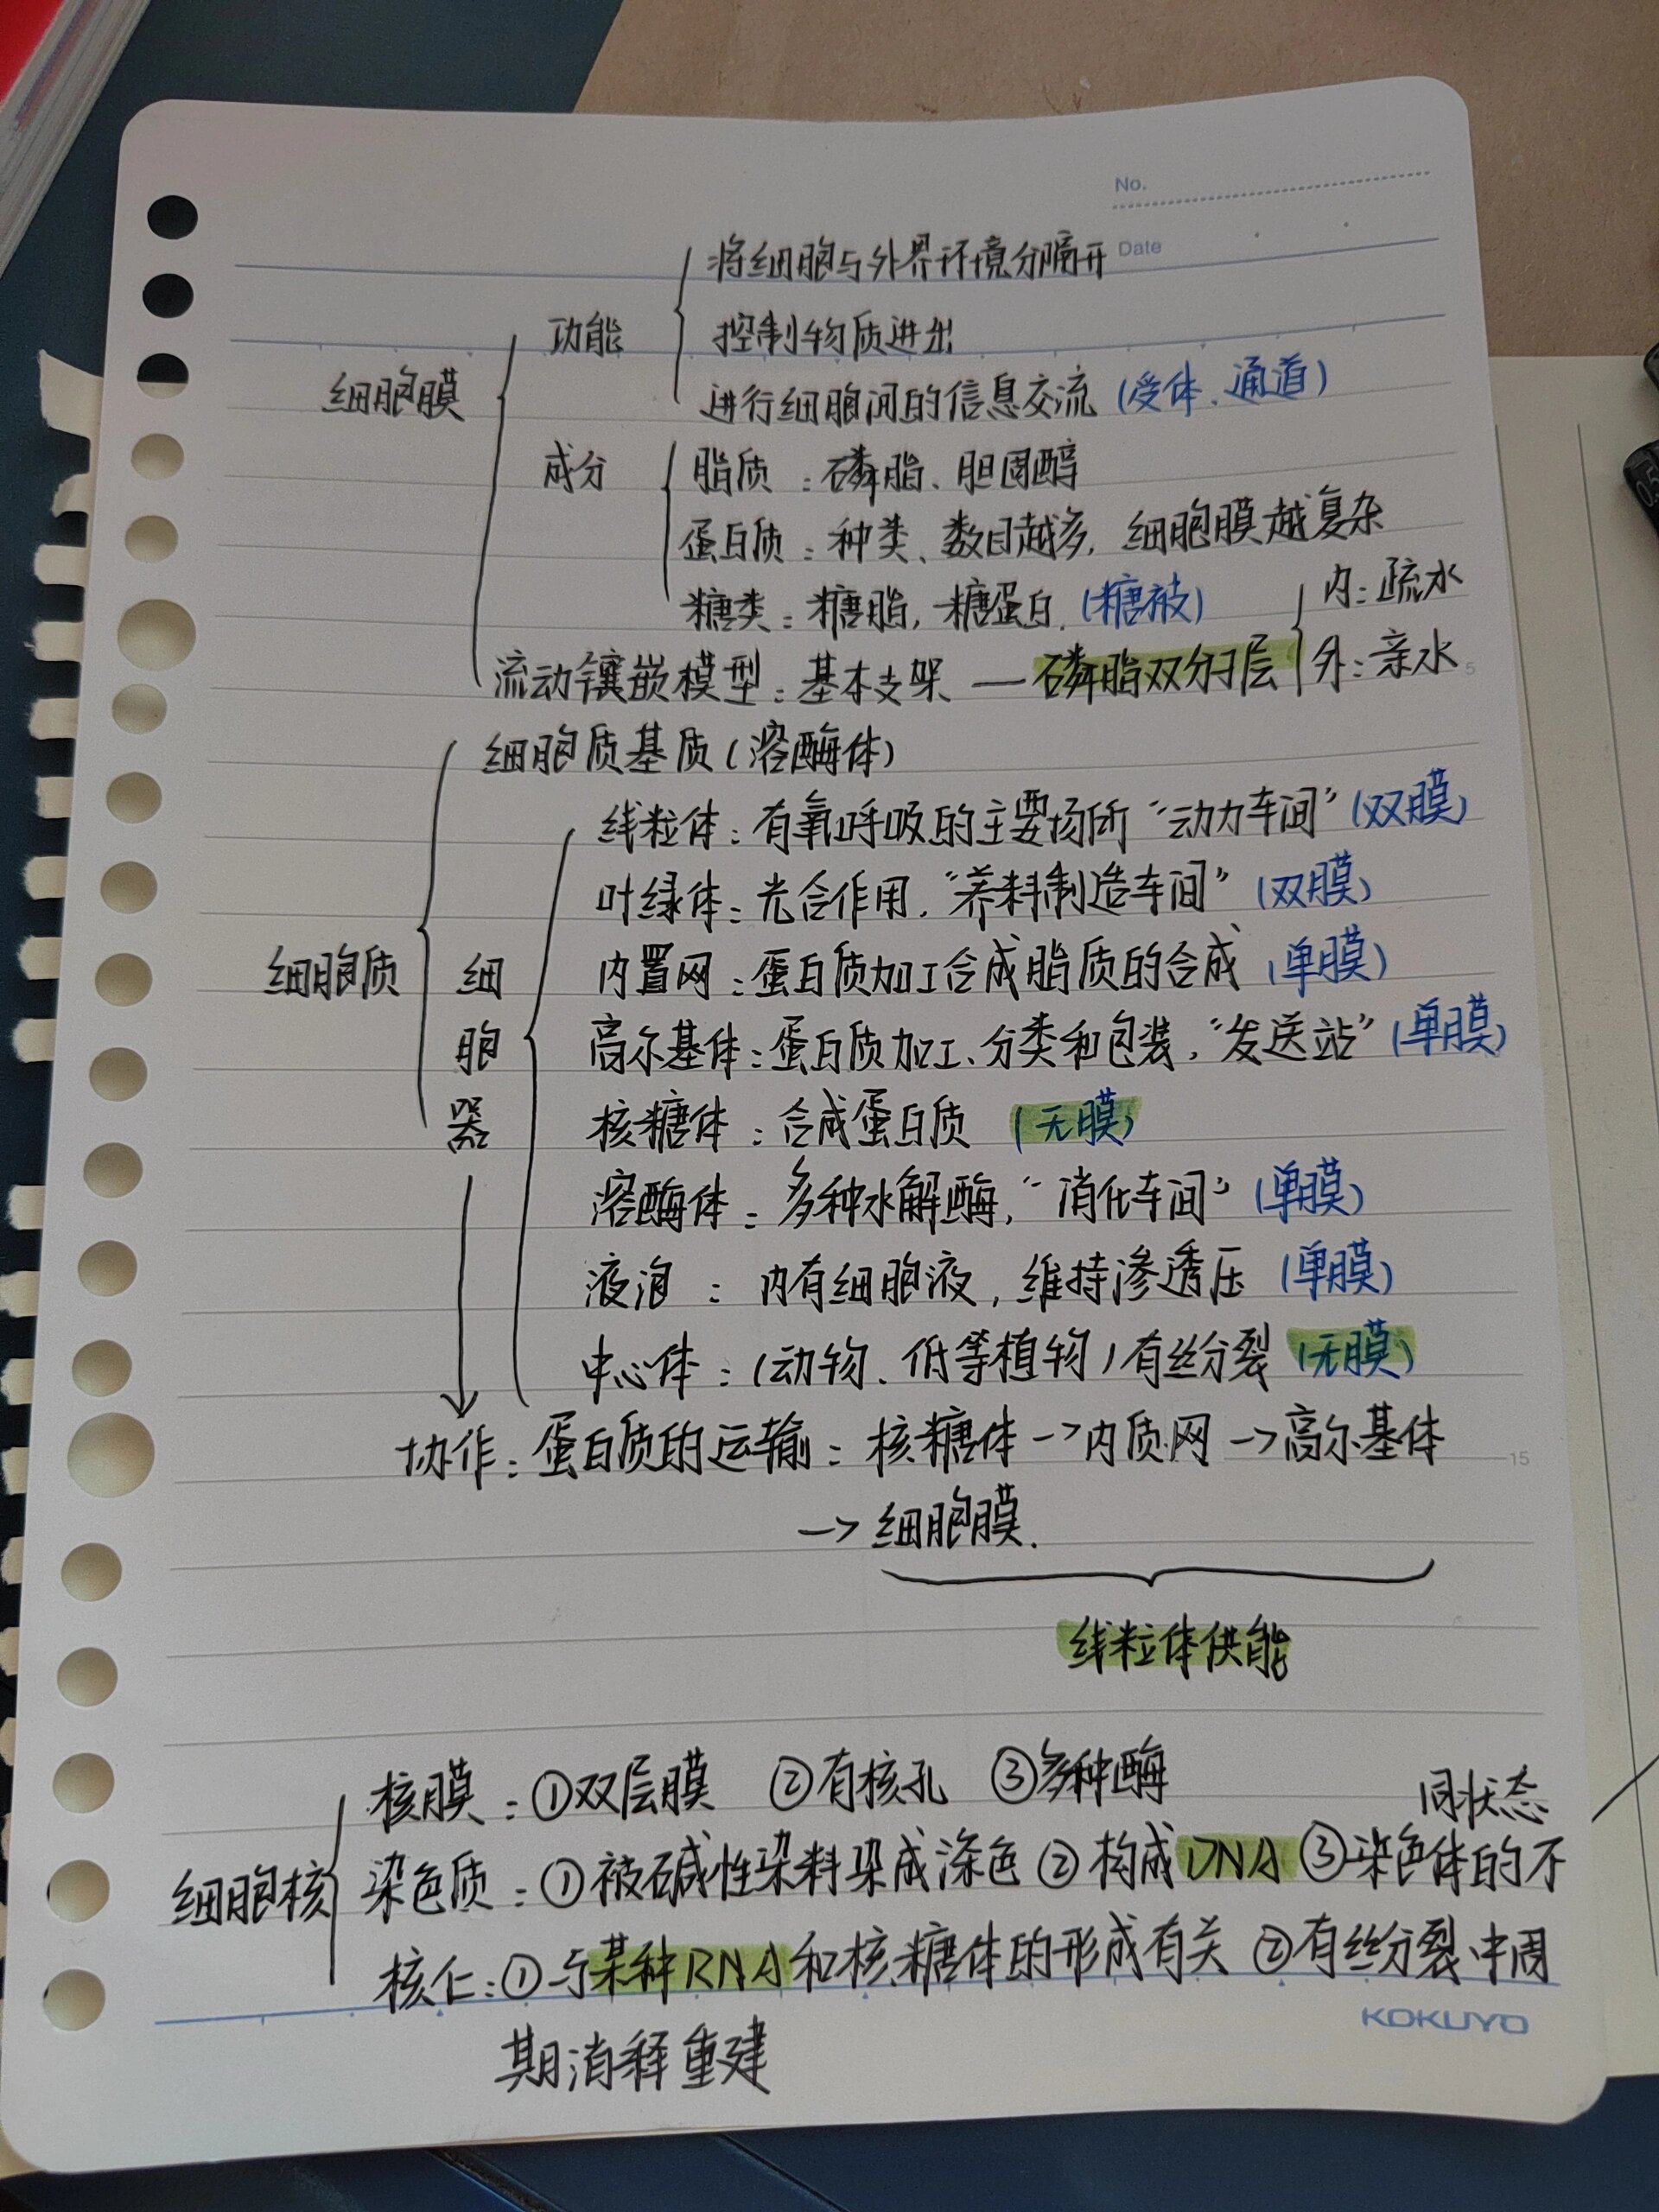 No.
Date
将细胞与外界环境分隔开
功能
控制物质进出
细胞膜
进行细胞间的信息交流 (受体、通道)
成分
脂质：磷脂、胆固醇
蛋白质：种类、数目越多，细胞膜越复杂
糖类：糖脂，糖蛋白.(糖被)
内：疏水
流动镶嵌模型：基本支架 — 磷脂双分子层
外：亲水
5
细胞质基质(溶酶体)
线粒体：有氧呼吸的主要场所 “动力车间” (双膜)
叶绿体：光合作用，“养料制造车间” (双膜)
细胞质
细胞器
内置网：蛋白质加工合成脂质的合成 (单膜)
高尔基体：蛋白质加工、分类和包装，“发送站” (单膜)
核糖体：合成蛋白质 (无膜)
溶酶体：多种水解酶，“消化车间” (单膜)
液泡：内有细胞液，维持渗透压 (单膜)
中心体：(动物、低等植物)有丝分裂 (无膜)
协作：蛋白质的运输：核糖体→内质网→高尔基体
15
→细胞膜.
线粒体供能
核膜：①双层膜 ②有核孔 ③多种酶
同状态
细胞核
染色质：①被碱性染料染成深色 ②构成DNA ③染色体的不
核仁：①与某种RNA和核糖体的形成有关 ②有丝分裂中周
KOKUYO
期消释重建